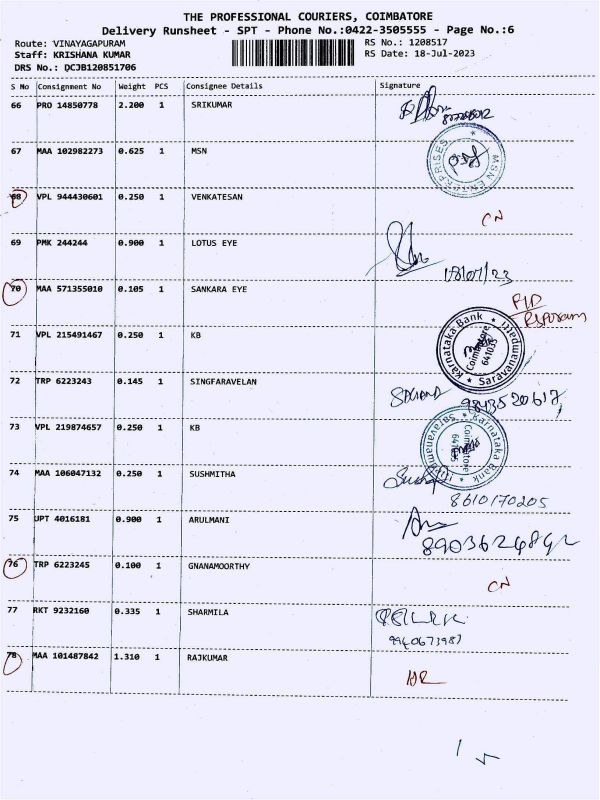 THE PROFESSIONAL COURIERS, COIMBATORE
Delivery Runsheet - SPT - Phone No.:0422-3505555 - Page No.:6
Route: VINAYAGAPURAM RS No.: 1208517
Staff: KRISHANA KUMAR RS Date: 18-Jul-2023
DRS No.: DCJB120851706
S No Consignment No Weight PCS Consignee Details Signature
66 PRO 14850778 2.200 1 SRIKUMAR
67 MAA 102982273 0.625 1 MSN
MSN ENTERPRISES
68 VPL 944430601 0.250 1 VENKATESAN
CN
69 PMK 244244 0.900 1 LOTUS EYE
18/07/23
70 MAA 571355010 0.105 1 SANKARA EYE
71 VPL 215491467 0.250 1 KB
Karnataka Bank
Coimbatore
641035
Saravanampatti
72 TRP 6223243 0.145 1 SINGFARAVELAN
9843520617
73 VPL 219874657 0.250 1 KB
Karnataka Bank
Coimbatore
641035
Saravanampatti
74 MAA 106047132 0.250 1 SUSHMITHA
8610170205
75 JPT 4016181 0.900 1 ARULMANI
76 TRP 6223245 0.100 1 GNANAMOORTHY
CN
77 RKT 9232160 0.335 1 SHARMILA
9940673987
78 MAA 101487842 1.310 1 RAJKUMAR